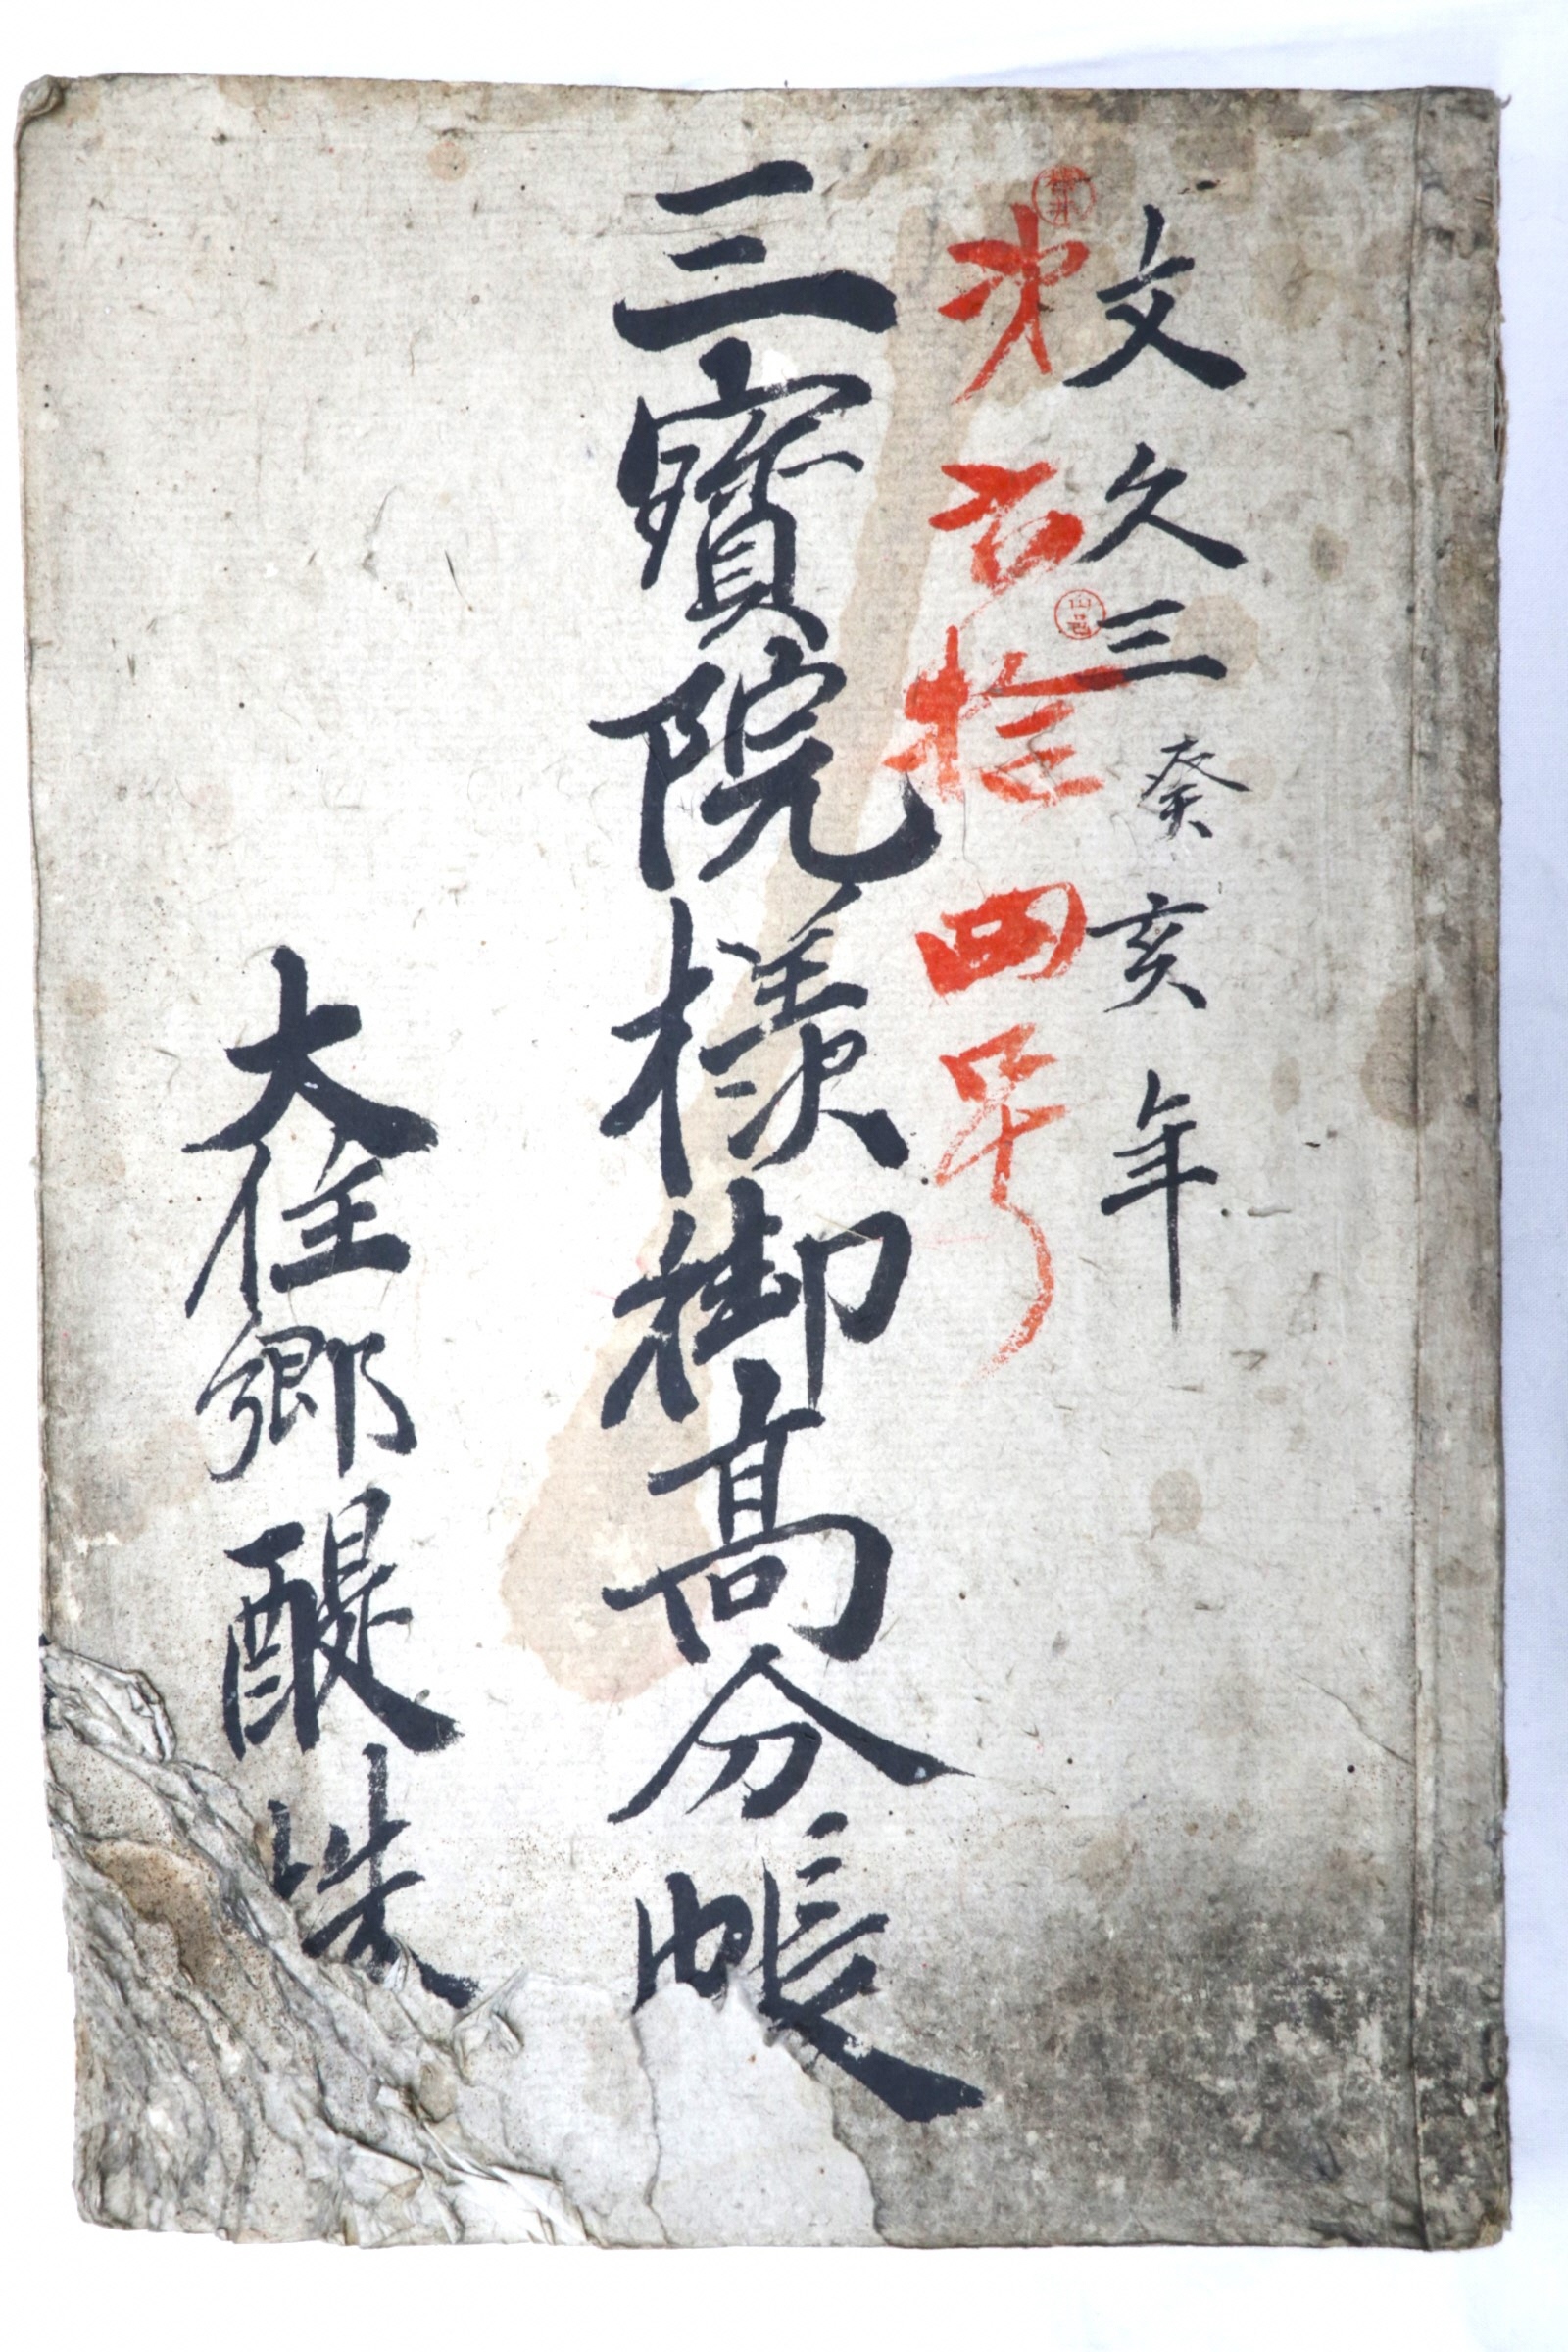 文久三癸亥年
第百拾四号
三寳院様御高分帳
大住郷醍